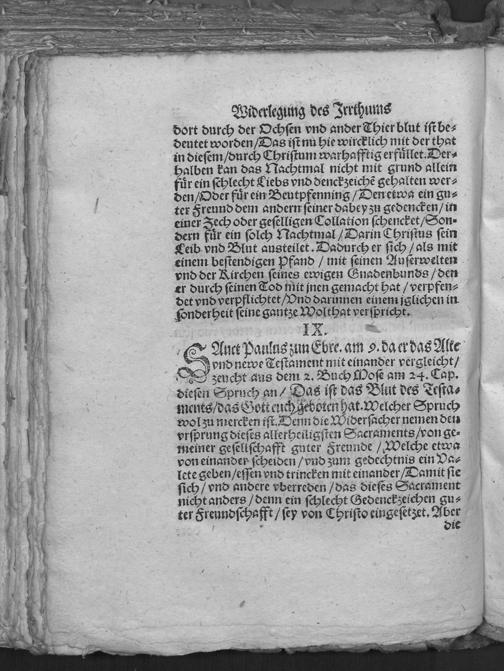 Widerlegung des Jrrthums
dort durch der Ochsen vnd ander Thier blut ist be-
deutet worden/Das ist nu hie wircklich mit der that
in diesem/durch Christum warhafftig erfüllet. Der-
halben kan das Nachtmal nicht mit grund allein
für ein schlecht Liebs vnd denckzeichē gehalten wer-
den/Oder für ein Beutpfenning/Den etwa ein gu-
ter Freund dem andern seiner dabey zu gedencken/in
einer Zech oder geselligen Collation schencket/Son-
dern für ein solch Nachtmal/Darin Christus sein
Leib vnd Blut austeilet. Dadurch er sich/als mit
einem bestendigen Pfand/mit seinen Auserwelten
vnd der Kirchen seines ewigen Gnadenbunds/den
er durch seinen Tod mit jnen gemacht hat/verpfen-
det vnd verpflichtet/Vnd darinnen einem jglichen in
sonderheit seine gantze Wolthat verspricht.
IX.
SAnct Paulus zun Ebre. am 9. da er das Alte
vnd newe Testament mit einander vergleicht/
zeucht aus dem 2. Buch Mose am 24. Cap.
diesen Spruch an/Das ist das Blut des Testa-
ments/das Gott euch geboten hat. Welcher Spruch
wol zu mercken ist. Denn die Widersacher nemen den
vrsprung dieses allerheiligsten Sacraments/von ge-
meiner gesellschafft guter Freunde/Welche etwa
von einander scheiden/vnd zum gedechtnis ein Va-
lete geben/essen vnd trincken mit einander/Damit sie
sich/vnd andere vberreden/das dieses Sacrament
nicht anders/denn ein schlecht Gedenckzeichen gu-
ter Freundschafft/sey von Christo eingesetzet. Aber
die